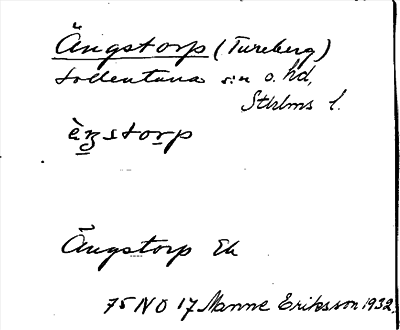 Ängstorp (Tureberg)
Sollentuna sn o. hd,
Sthlms l.
Ängstorp Ek
75 NO 17 Manne Eriksson 1932.